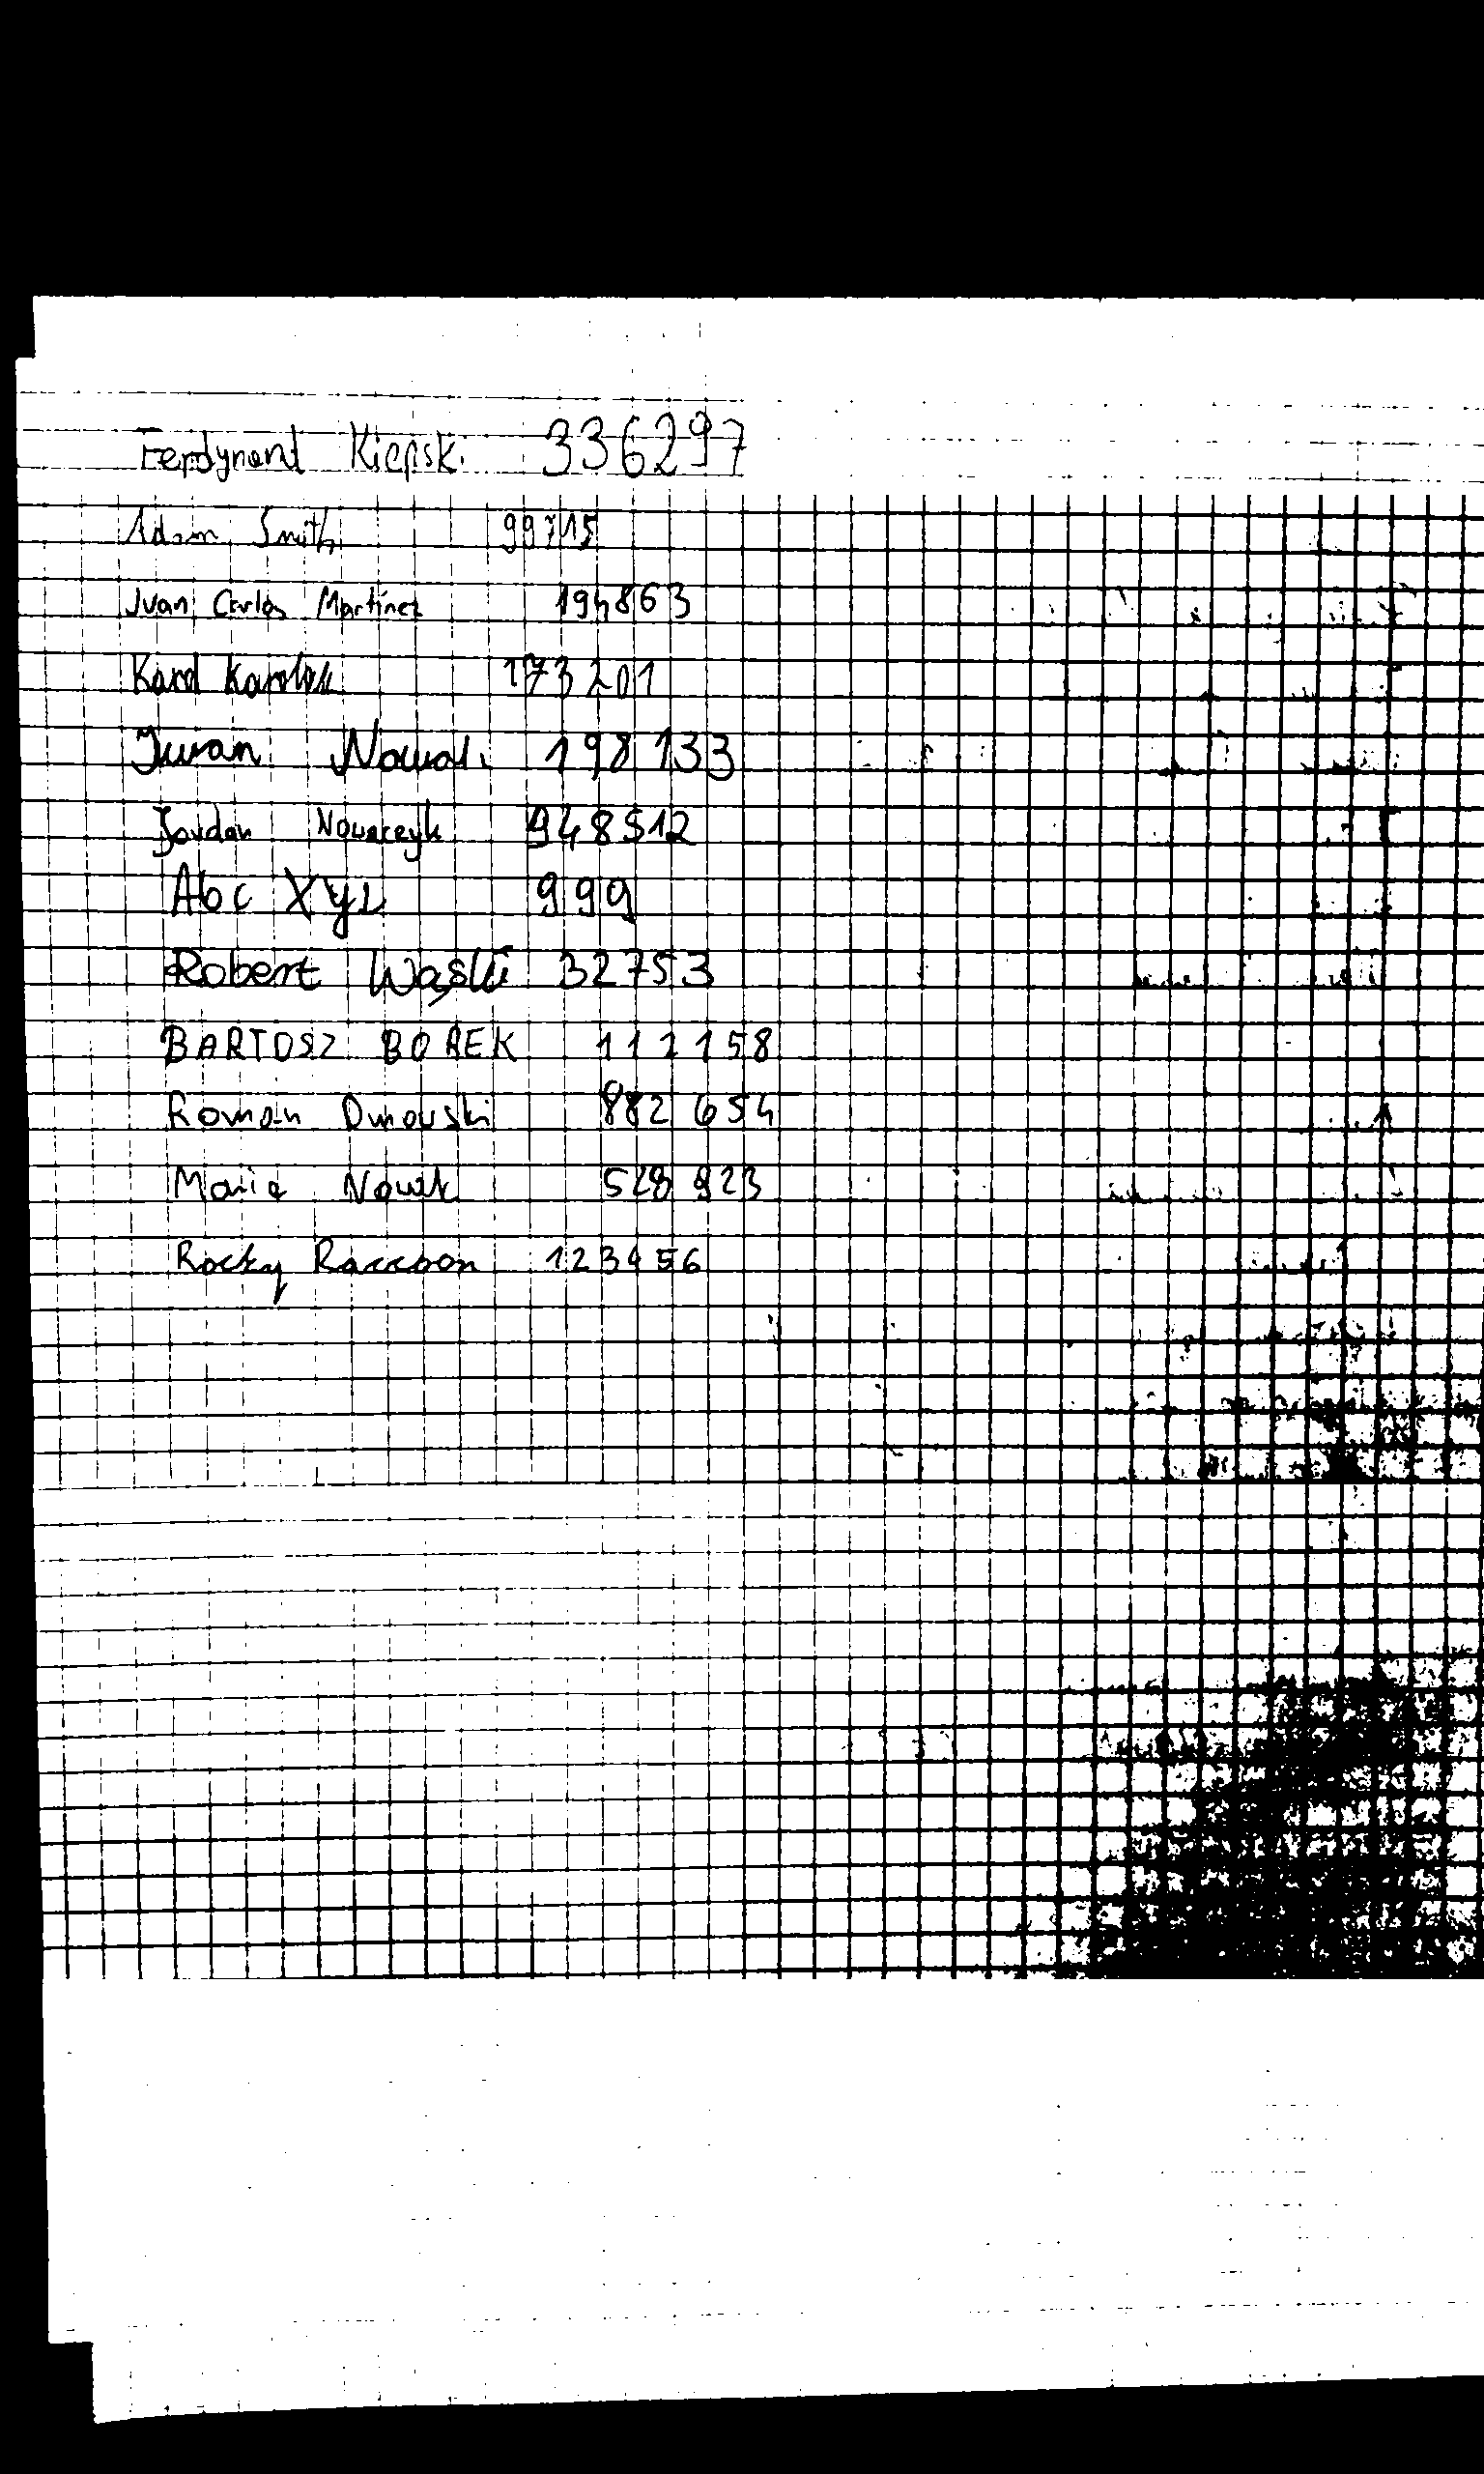 Ferdynand Kiepski 336297
Adam Smith 99715
Juan Carlos Martinez 194863
Karol 173201
Iwan Nowak 198133
Jordan Nowaczyk 948512
Abc Xyz 999
Robert Wąski 32753
BARTOSZ BOREK 112158
Roman Dmowski 882654
Maria Nowik 528923
Rocky Raccoon 123456